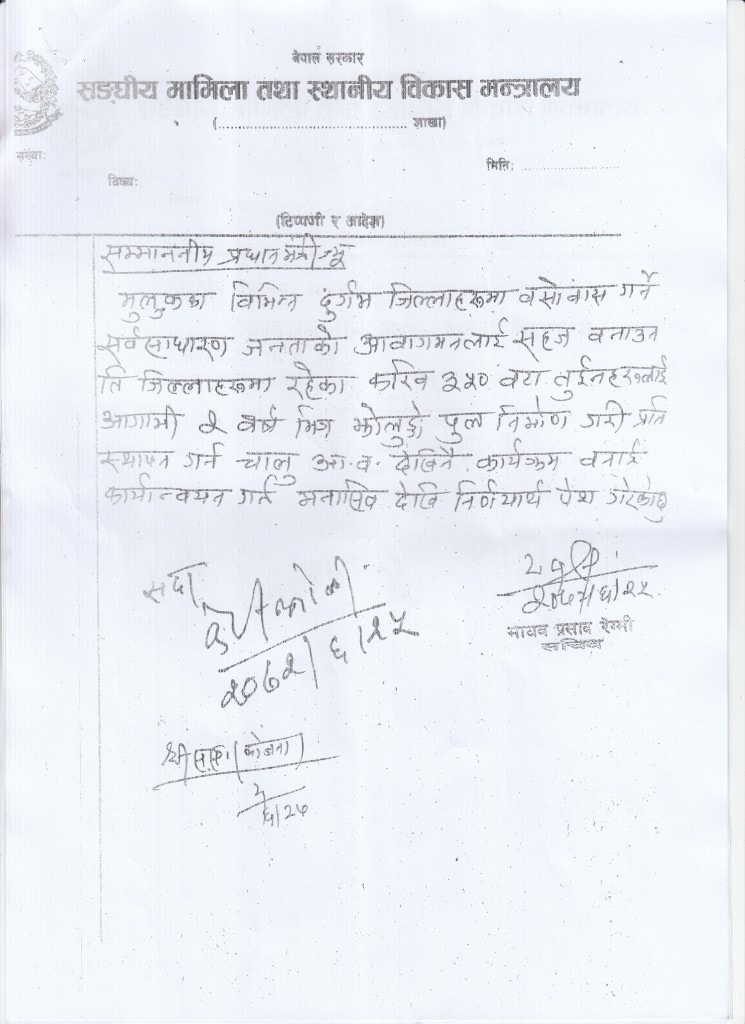 नेपाल सरकार
सङ्घीय मामिला तथा स्थानीय विकास मन्त्रालय
(................................ शाखा)
संख्याः
मितिः ..................
विषयः
(टिप्पणी र आदेश)
सम्माननीय प्रधानमंत्री ज्यू
मुलुकका विभिन्न दुर्गम जिल्लाहरूमा वसोवास गर्ने
सर्वसाधारण जनताको आवागमनलाई सहज वनाउन
ति जिल्लाहरूमा रहेका करिव ३५० वटा तुईनहरूलाई
आगामी २ वर्ष भित्र झोलुङ्गे पुल निर्माण गरी प्रति
स्थापन गर्न चालु आ.व. देखिनै कार्यक्रम वनाई
कार्यान्वयन गर्न मनासिव देखि निर्णयार्थ पेश गरेकोछु
सदर
२०७२/६/२५
२०७२/६/२५
माधव प्रसाद रेग्मी
सचिव
श्री सह. (योजना)
६/२५